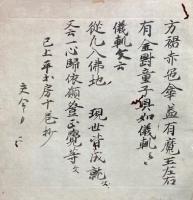 方裾赤色傘盖有魔王左右
有金剛童子具如儀軌云
儀軌文云
從凡入佛地 現世皆成就文
又云一心歸依願登正覺等文
已上平等房十巻抄